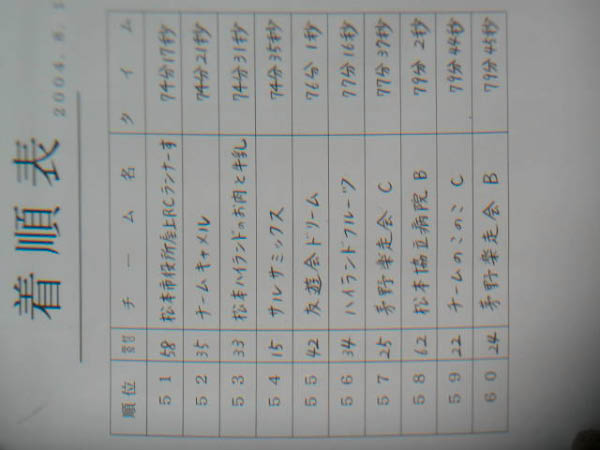 着順表
2004.8.
順位 番号 チーム名 タイム
51 58 松本市役所屋上RCランナーず 74分17秒
52 35 チームキャメル 74分21秒
53 33 松本ハイランドのお肉と牛乳 74分31秒
54 15 サルサミックス 74分35秒
55 42 友遊会ドリーム 76分1秒
56 34 ハイランドフルーツ 77分16秒
57 25 茅野楽走会 C 77分37秒
58 62 松本協立病院 B 79分2秒
59 22 チームのこのこ C 79分44秒
60 24 茅野楽走会 B 79分45秒